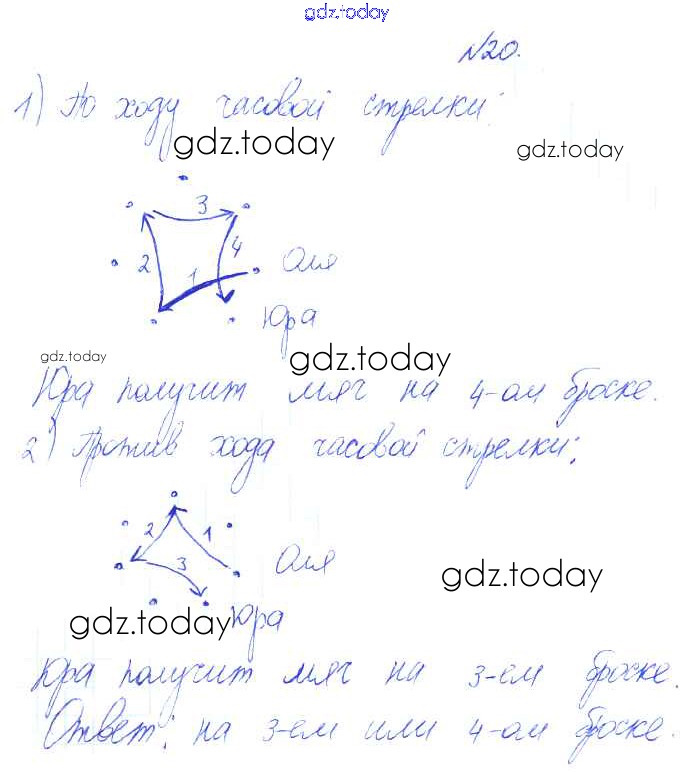 gdz.today
№20.
1) По ходу часовой стрелки:
gdz.today gdz.today
3
2 4
1 Оля
Юра
gdz.today gdz.today
Юра получит мяч на 4-ом броске.
2) Против хода часовой стрелки:
2 1
3 Оля
gdz.today
gdz.today Юра
Юра получит мяч на 3-ем броске.
Ответ: на 3-ем или 4-ом броске.